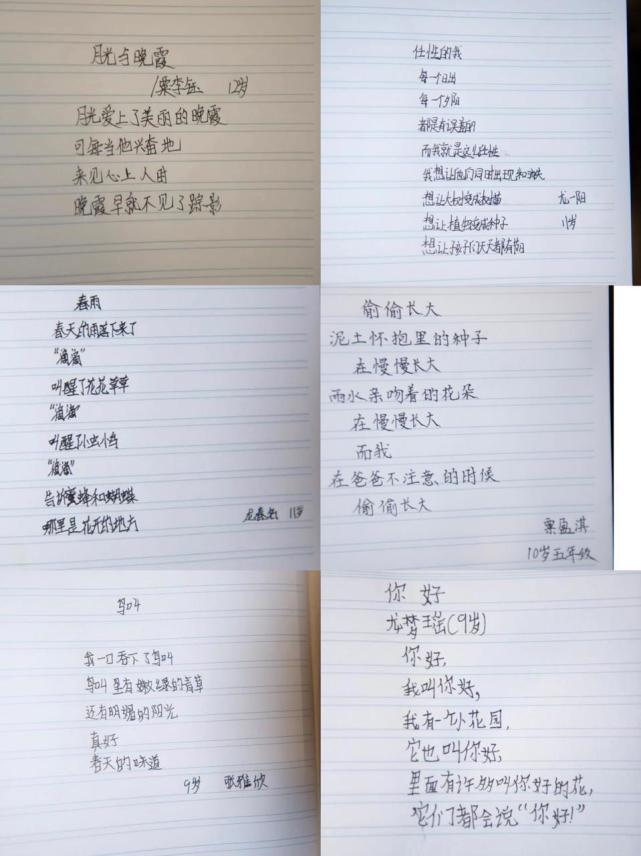 月光与晚霞
粟李 12岁
月光爱上了美丽的晚霞
可每当他兴奋地
来见心上人时
晚霞早就不见了踪影
任性的我
每一个日出
每一个夕阳
都是有误差的
而我就是这么任性
我想让他们同时出现和消失
想让大树变成树苗
想让植物变成种子
想让孩子们天天都有阳
龙一阳
11岁
春雨
春天的雨落下来了
“滴滴”
叫醒了花花草草
“滴滴”
叫醒了小虫小鸟
“滴滴”
告诉蜜蜂和蝴蝶
哪里是花开的地方
龙 11岁
偷偷长大
泥土怀抱里的种子
在慢慢长大
雨水亲吻着的花朵
在慢慢长大
而我
在爸爸不注意的时候
偷偷长大
粟盈淇
10岁五年级
鸟叫
我一口吞下了鸟叫
鸟叫里有嫩绿的青草
还有明媚的阳光
真好
春天的味道
9岁 张雅欣
你好
龙梦瑶(9岁)
你好,
我叫你好,
我有一个小花园,
它也叫你好,
里面有许多叫你好的花,
它们都会说“你好!”